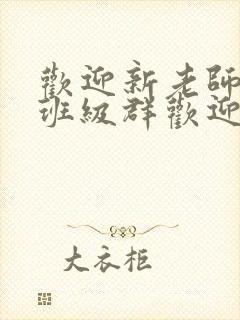 歡迎新老師
班級群歡迎
大衣柜